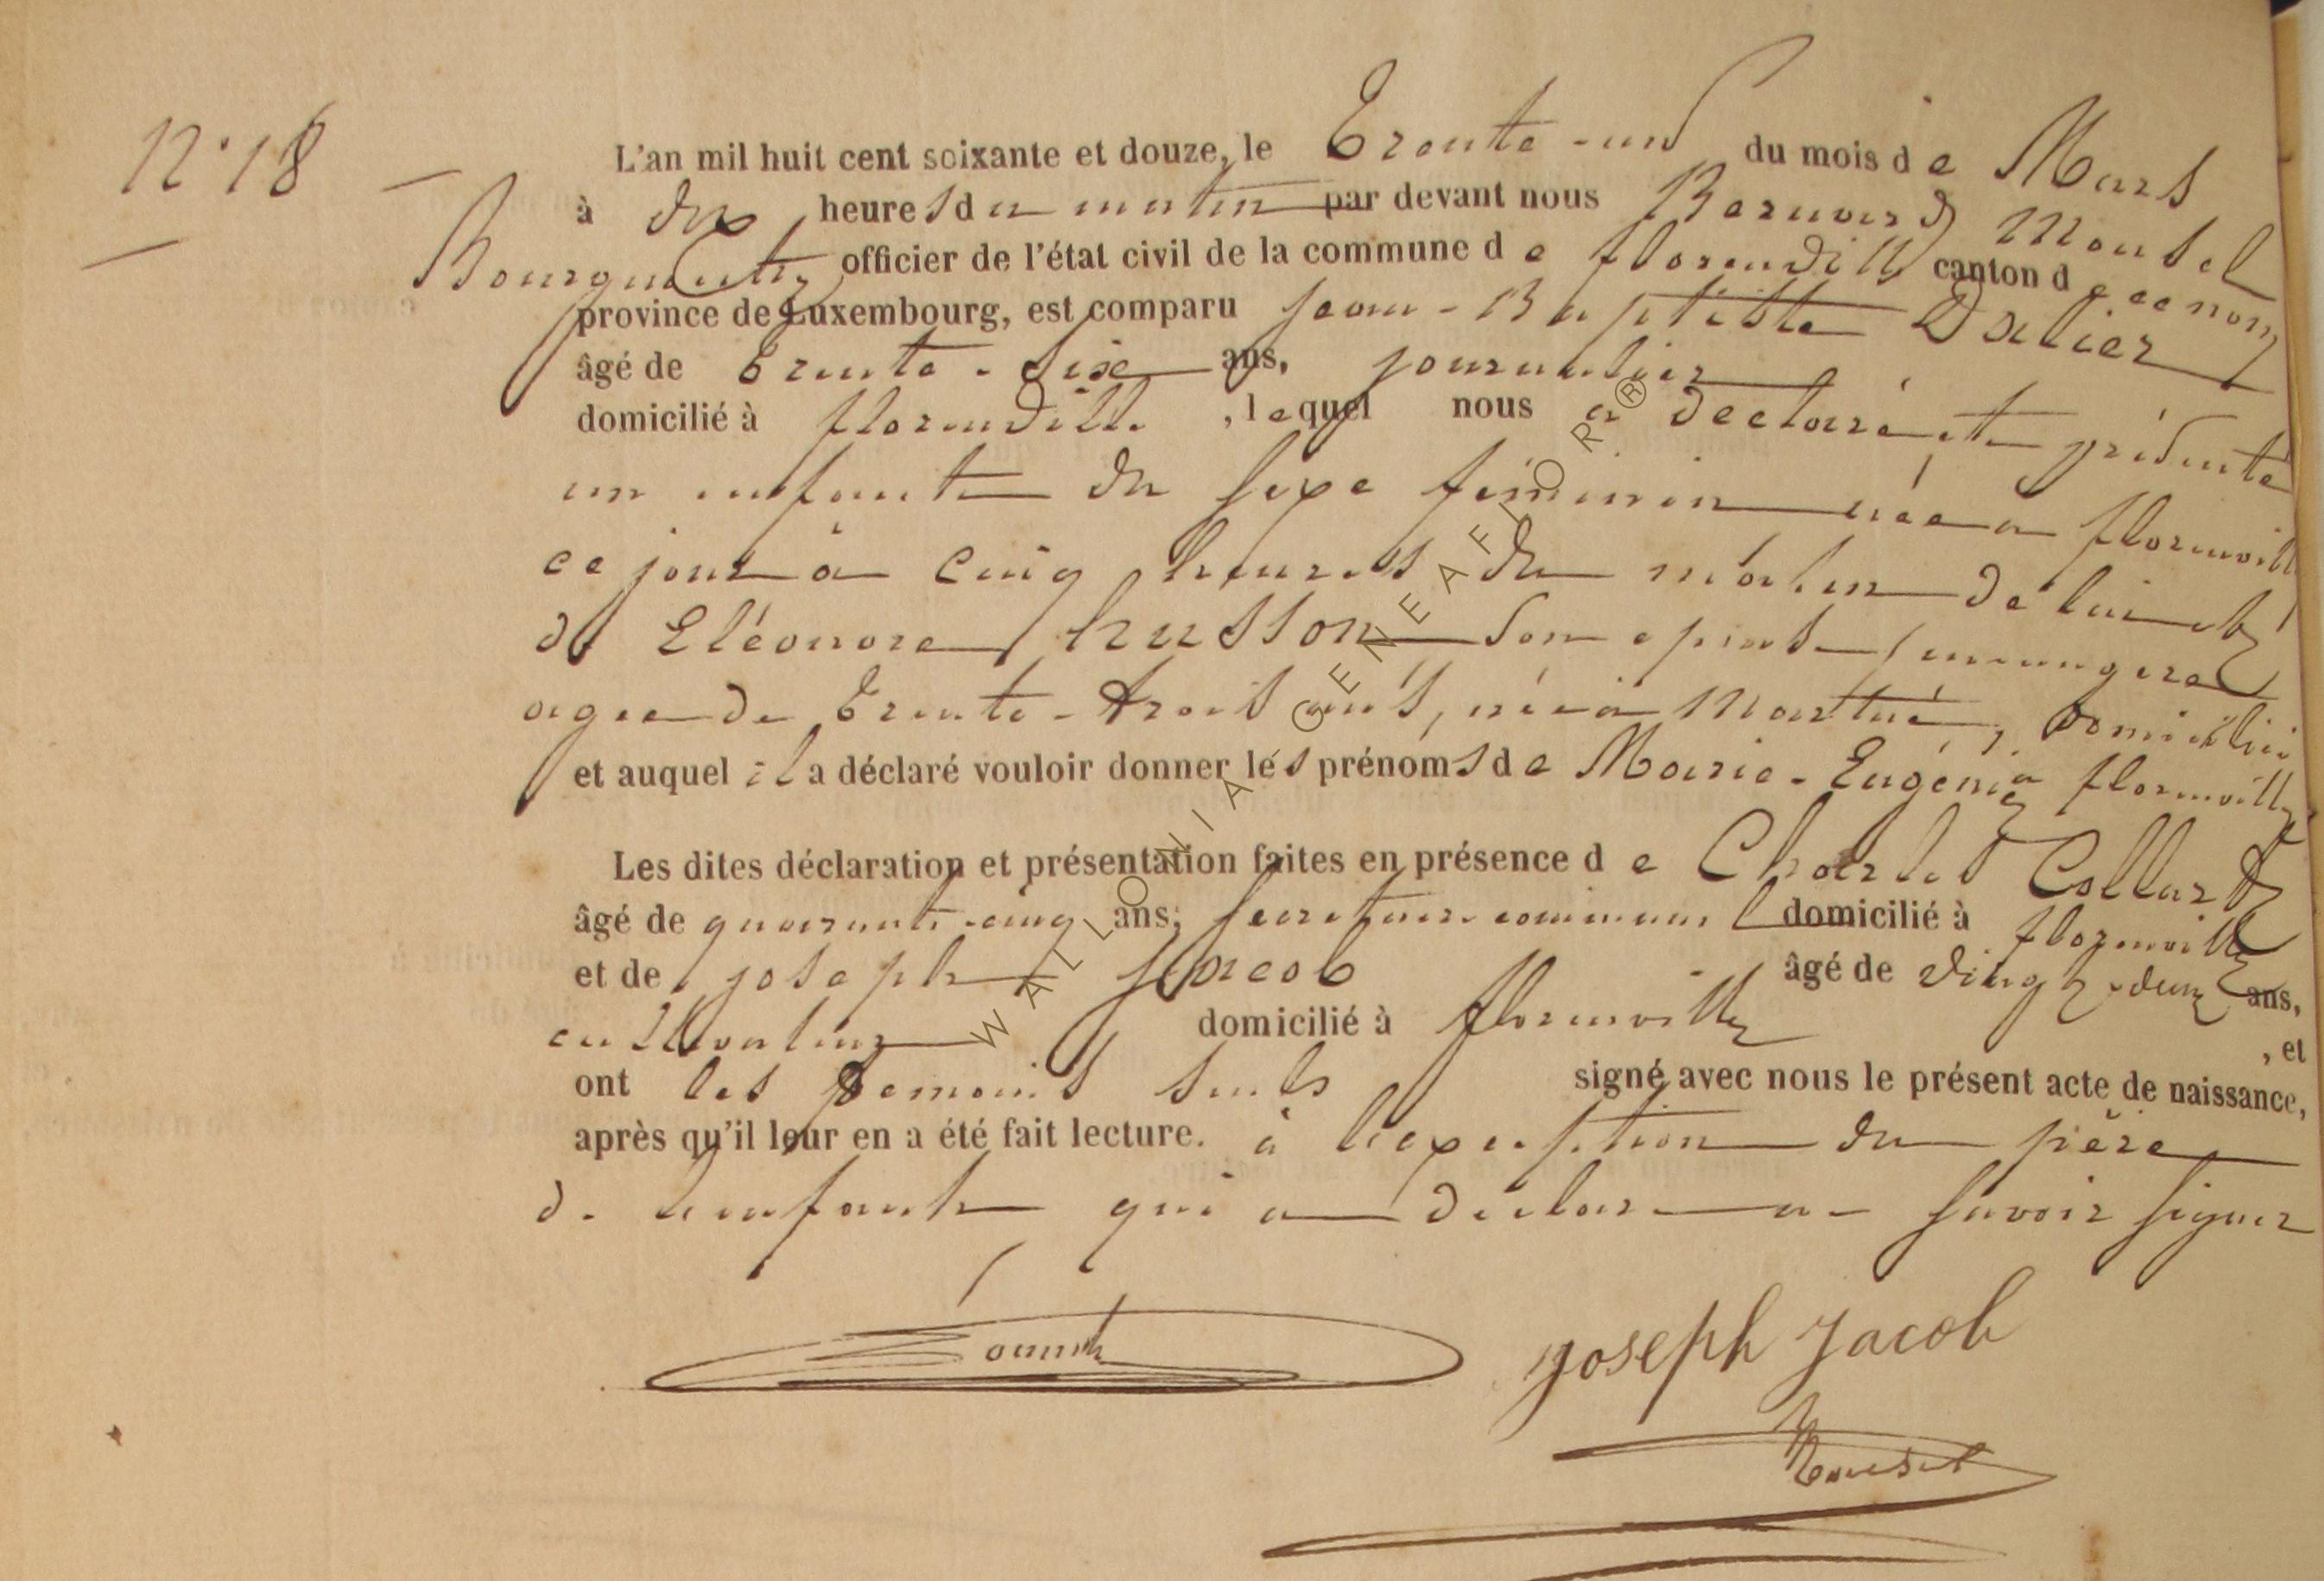 N° 18
L'an mil huit cent soixante et douze, le Trente-un du mois de Mars
à dix heures du matin par devant nous Bernard Mousel
Bourgmestre officier de l'état civil de la commune de florenville canton de ce nom
province de Luxembourg, est comparu Jean-Baptiste Dalier
âgé de trente-six ans, journalier
domicilié à florenville, lequel nous a déclaré et présenté
un enfant du sexe féminin née à florenville
ce jour à cinq heures du matin de lui et
de Eléonore husson son epouse, menagere
agee de trente-trois ans, née à Martué, domicilié
et auquel il a déclaré vouloir donner les prénoms de Marie-Eugénie à florenville
Les dites déclaration et présentation faites en présence de Charles Collard
âgé de quarante-cinq ans, secretaire communal domicilié à florenville
et de joseph Jacob âgé de vingt-deux ans,
cultivateur domicilié à florenville, et
ont les temoins seuls signé avec nous le présent acte de naissance,
après qu'il leur en a été fait lecture. à l'exception du père
de l'enfant qui a déclaré ne savoir signer
Joseph Jacob
Mousel
WALLONIA GENEAFTORR®